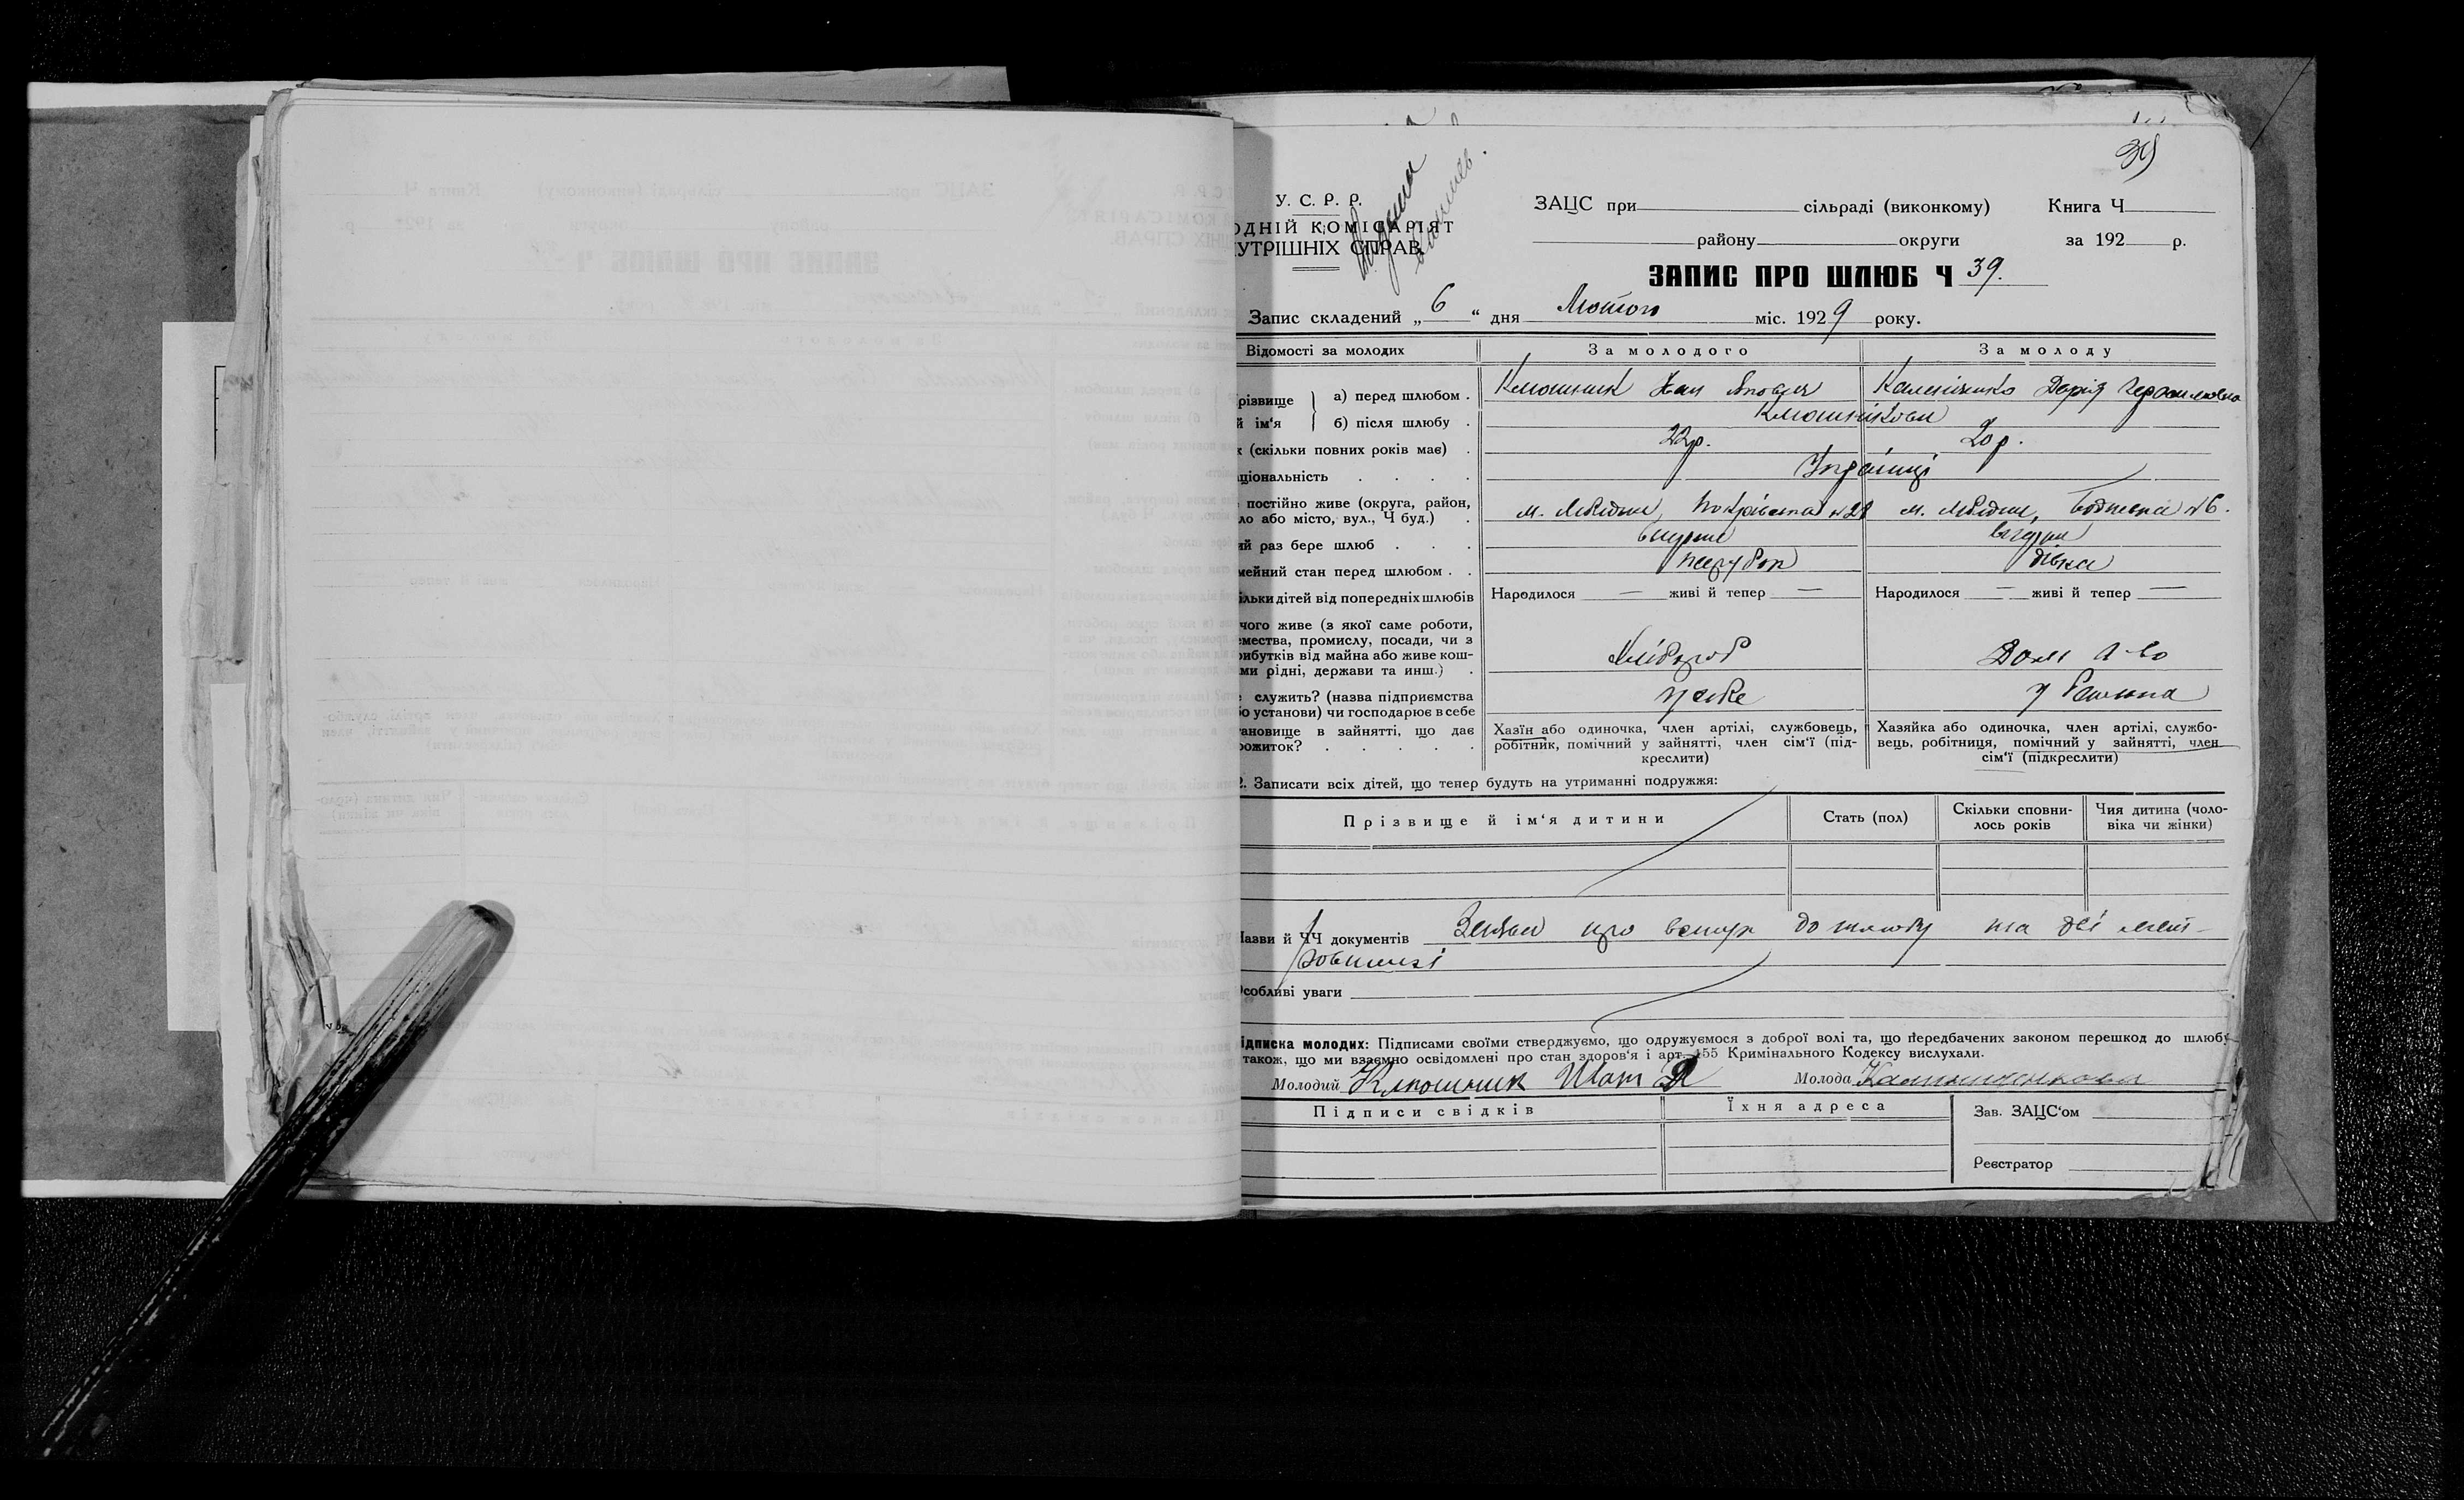 39
У. С. Р. Р.
ОДНІЙ КОМІСАРІЯТ
УТРІШНІХ СПРАВ
ЗАЦС при сільраді (виконкому) Книга Ч
району округи за 192 р.
ЗАПИС ПРО ШЛЮБ Ч 39.
Запис складений „ 6 “ дня Лютого міс. 1929 року.
Відомості за молодих За молодого За молоду
різвище й ім‘я
а) перед шлюбом . Клюшник Іван Яковл Каленіченко Дарія
б) після шлюбу . Клюшнікови
(скільки повних років має) . 22р. 20р.
ціональність . . . . Українці
постійно живе (округа, район,
ло або місто, вул., Ч буд.) . м. Лебедин, Покрівська №28 м. Лебедин, №6.
ий раз бере шлюб . . . вперше вперше
мейний стан перед шлюбом . . парубок дівка
ільки дітей від попередніх шлюбів Народилося — живі й тепер — Народилося — живі й тепер —
чого живе (з якої саме роботи,
емества, промислу, посади, чи з
рибутків від майна або живе кош-
ми рідні, держави та инш.) . Хлібороб Дом г-во
служить? (назва підприємства
бо установи) чи господарює в себе у себе у батька
тановище в зайнятті, що дає
рожиток? . . . . .
Хазїн або одиночка, член артілі, службовець,
робітник, помічний у зайнятті, член сім‘ї (під-
креслити)
Хазяйка або одиночка, член артілі, службо-
вець, робітниця, помічний у зайнятті, член
сім‘ї (підкреслити)
2. Записати всіх дітей, що тепер будуть на утриманні подружжя:
Прізвище й ім‘я дитини Стать (пол) Скільки сповни-
лось років Чия дитина (чоло-
віка чи жінки)
Назви й ЧЧ документів Заява про вступ до шлюбу та дві мет-
Особливі уваги
ідписка молодих: Підписами своїми стверджуємо, що одружуємося з доброї волі та, що передбачених законом перешкод до шлюбу
також, що ми взаємно освідомлені про стан здоров‘я і арт. 155 Кримінального Кодексу вислухали.
Молодий Клюшник Иван Я Молода
Підписи свідків Їхня адреса Зав. ЗАЦС‘ом
Реєстратор